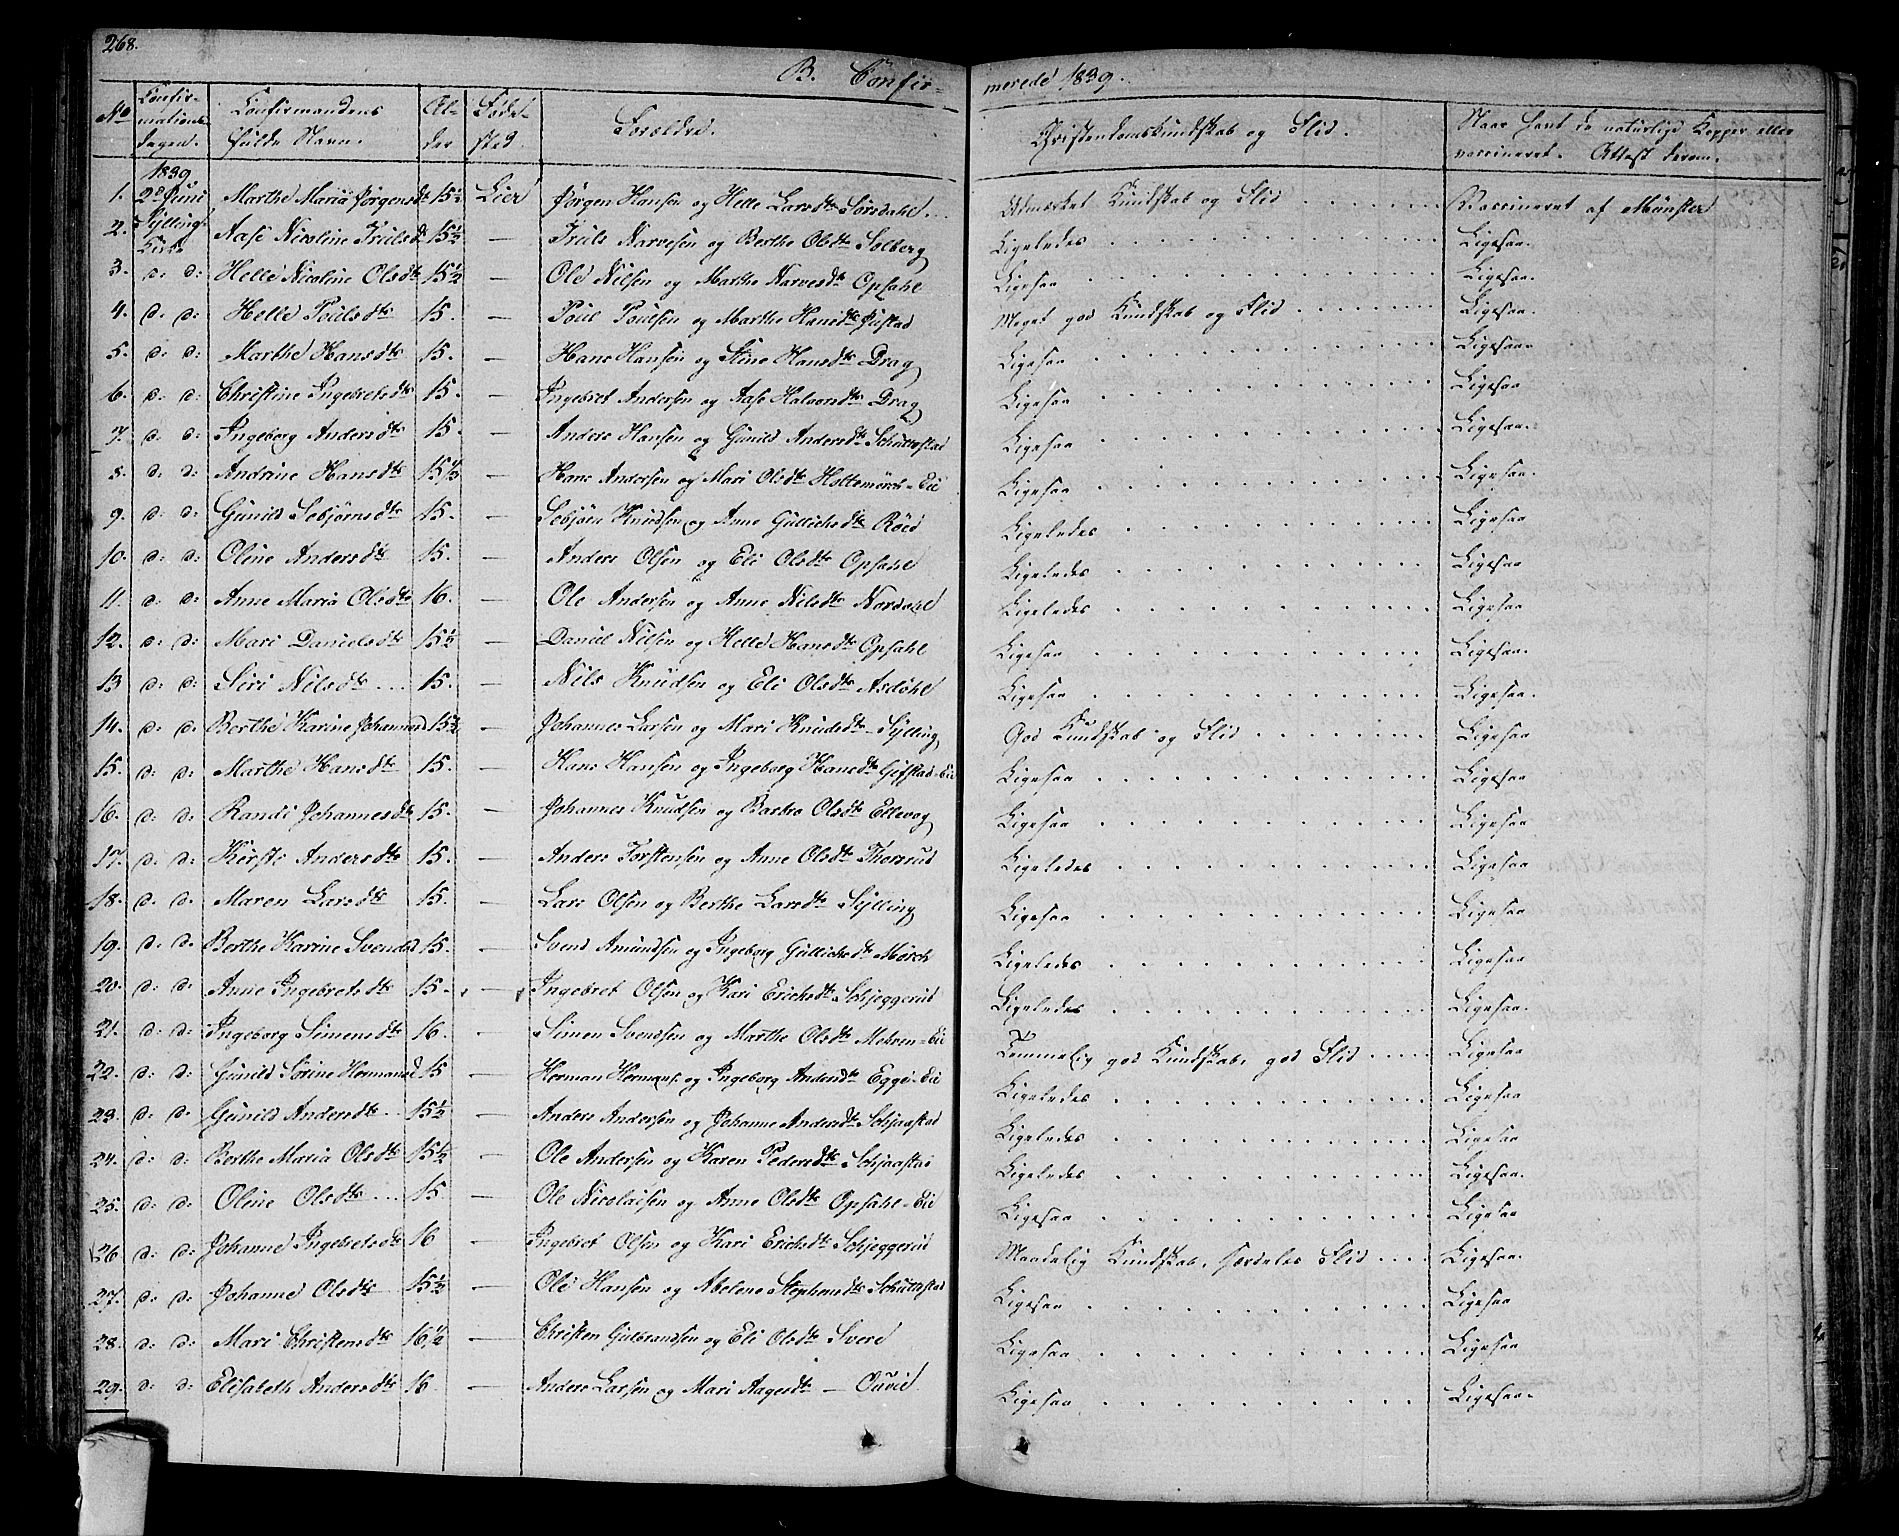 268.
B. Confir-
merede 1839.
No Confir-mations dagen. Confirmandens fulde Navn. Al-der Føde-sted Forældre. Christendomskundskab og Flid. Naar havt de naturlige Kopper eller vaccineret. Attest derom.
1839
1. 2d Juni Marthe Maria Jørgensdt 15½ Lier Jørgen Hansen og Helle Larsdtr Sørsdahl. Udmærket Kundskab og Flid Vaccineret af Münster
2. Sylling Kirke Aase Nicoline Truls 15½ — Truls Narvesen og Berthe Olsdtr Solberg Ligeledes Ligesaa.
3. d: d: Helle Nicoline Olsdtr 15½ — Ole Nilsen og Marthe Narvesdtr Opsahl Ligesaa Ligesaa.
4. d: d: Helle Poulsdtr 15. — Poul Poulsen og Marthe Hansdtr Meget god Kundskab og Flid Ligesaa.
5. d: d: Marthe Hansdtr 15. — Hans Hansen og Stine Hansdtr Drag Ligesaa Ligesaa.
6. d: d: Christine Ingebretsdtr 15. — Ingebret Andersen og Aase Halvorsdtr Drag Ligesaa Ligesaa
7. d: d: Ingeborg Andersdtr 15. — Anders Hansen og Gunild Andersdtr Schuttestad Ligesaa Ligesaa.
8. d: d: Andrine Hansdtr 15½ — Hans Andersen og Mari Olsdtr Holtsmörch-Eie Ligesaa Ligesaa
9. d: d: Gunild Sebjørnsdtr 15. — Sebjørn Knudsen og Anne Gullichsdtr Röed Ligeledes Ligesaa
10. d: d: Oline Andersdtr 15. — Anders Olsen og Eli Olsdtr Opsahl Ligeledes Ligesaa
11. d: d: Anne Maria Olsdtr 16. — Ole Andersen og Anne Nilsdtr Nordahl Ligeledes Ligesaa
12. d: d: Mari Danielsdtr 15½ — Daniel Nilsen og Helle Hansdtr Opsahl Ligesaa Ligesaa.
13 d: d: Siri Nilsdtr 15. — Nils Knudsen og Eli Olsdtr Asdöhl Ligesaa Ligesaa.
14. d: d: Berthe Karine Johannesd 15½ — Johannes Larsen og Mari Knudsdtr Sylling God Kundskab og Flid Ligesaa
15. d: d: Marthe Hansdtr 15. — Hans Hansen og Ingeborg Hansdtr Gifstad-Eie Ligesaa Ligesaa
16. d: d: Randi Johannesdtr 15. — Johannes Knudsen og Barbro Olsdtr Ellevog Ligesaa Ligesaa
17. d: d: Kirsti Andersdtr 15. — Anders Torstensen og Anne Olsdtr Thorsrud Ligeledes Ligesaa
18. d: d: Maren Larsdtr 15. — Lars Olsen og Berthe Larsdtr Sylling Ligesaa Ligesaa
19. d: d: Berthe Karine Svendsd 15. — Svend Amundsen og Ingeborg Gullichsdtr Mörch Ligeledes Ligesaa
20. d: d: Anne Ingebretsdtr 15. — Ingebret Olsen og Kari Erichsdtr Schjeggerud Ligeledes Ligesaa
21. d: d: Ingeborg Simensdtr 16. — Simen Svendsen og Marthe Olsdtr Mehren-Eie Temmelig god Kundskab, god Flid Ligesaa
22. d: d: Gunild Sörine Hermansd 15 — Herman Hermans. og Ingeborg Andersdtr Egge-Eie Ligeledes Ligesaa
23. d: d: Gunild Andersdtr 15½ — Anders Andersen og Johanne Andersdtr Schjaastad Ligeledes Ligesaa
24. d: d: Berthe Maria Olsdtr 15½ — Ole Andersen og Karen Pedersdtr Schjaastad Ligeledes Ligesaa.
25. d: d: Oline Olsdtr 15. — Ole Nicolaisen og Anne Olsdtr Opsahl-Eie Ligesaa Ligesaa
26. d: d: Johanne Ingebretsdtr 16 — Ingebret Olsen og Kari Erichsdtr Schjeggerud Maadelig Kundskab, særdeles Flid Ligesaa.
27. d: d: Johanne Olsdtr 15½ — Ole Hansen og Abelone Stephensdtr Schuttestad Ligesaa Ligesaa
28. d: d: Mari Christensdtr 16½ — Christen Gulbrandsen og Eli Olsdtr Svere Ligesaa Ligesaa
29. d: d: Elisabeth Andersdtr 16 — Anders Larsen og Mari Aagesdtr — Ouvie Ligesaa Ligesaa.